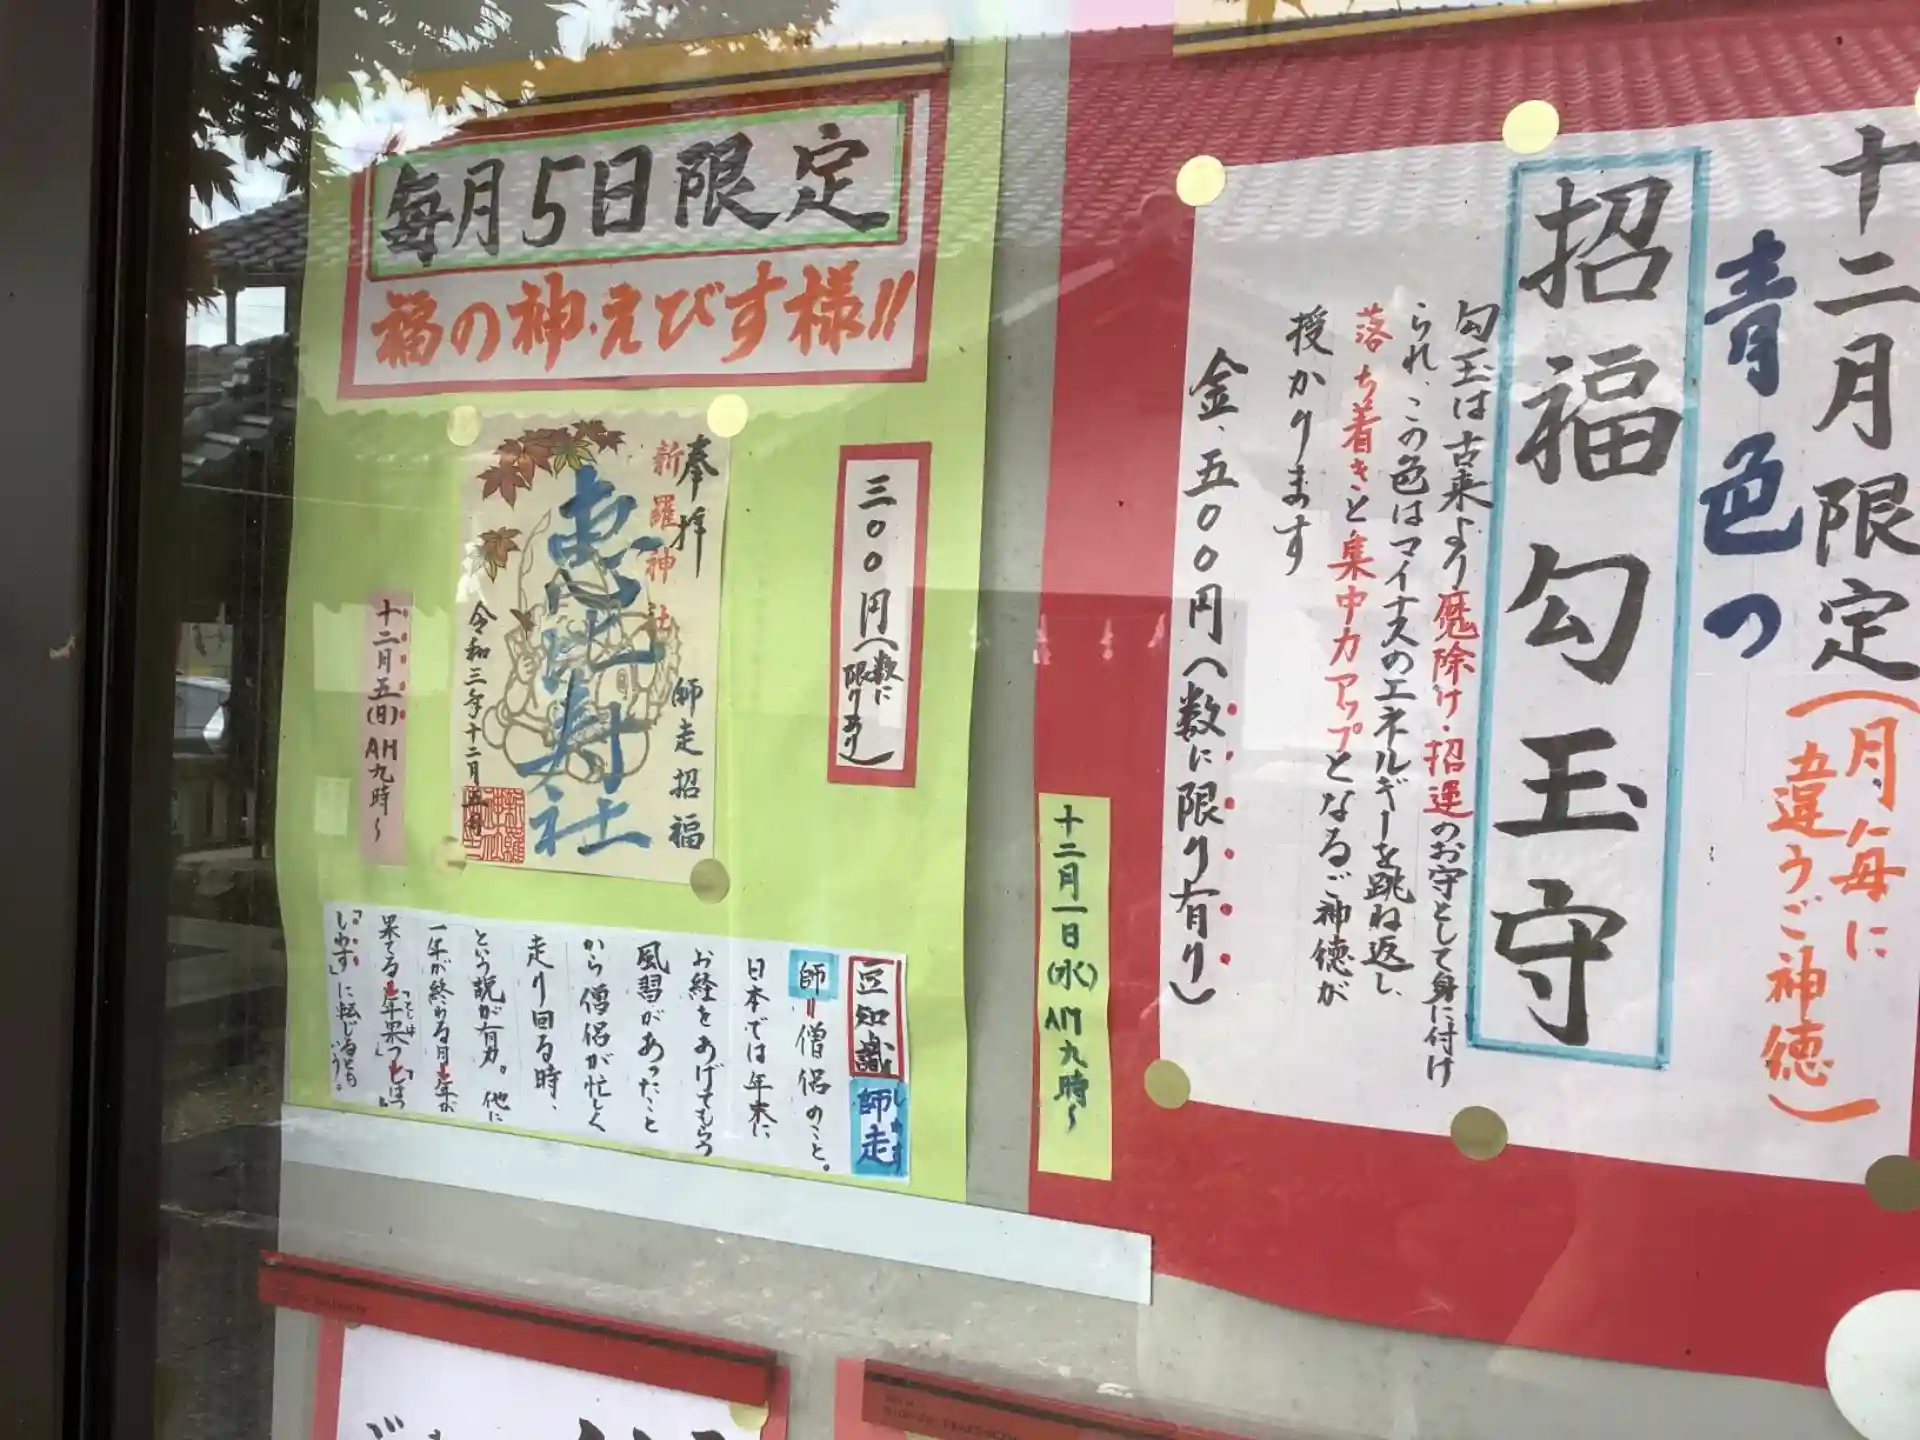 毎月5日限定
福の神・えびす様!!
奉拝
新羅神社
師走招福
恵比寿社
令和三年十二月五日
三〇〇円(数に限りあり)
十二月五(日)AM九時~
豆知識
師走
しわす
師=僧侶のこと。
日本では年末に
お経をあげてもらう
風習があったこと
から僧侶が忙しく
走り回る時、
という説が有力。他に
一年が終わる月=年が
果てる=年果つ=「としはつ」
「しわす」に転じるとも
いう。
十二月限定(月毎に
五違うご神徳)
青色つ
招福勾玉守
勾玉は古来より魔除け・招運のお守として身に付け
られ、この色はマイナスのエネルギーを跳ね返し、
落ち着きと集中力アップとなるご神徳が
授かります
金、五〇〇円(数に限り有り)
十二月一日(水)AM九時~